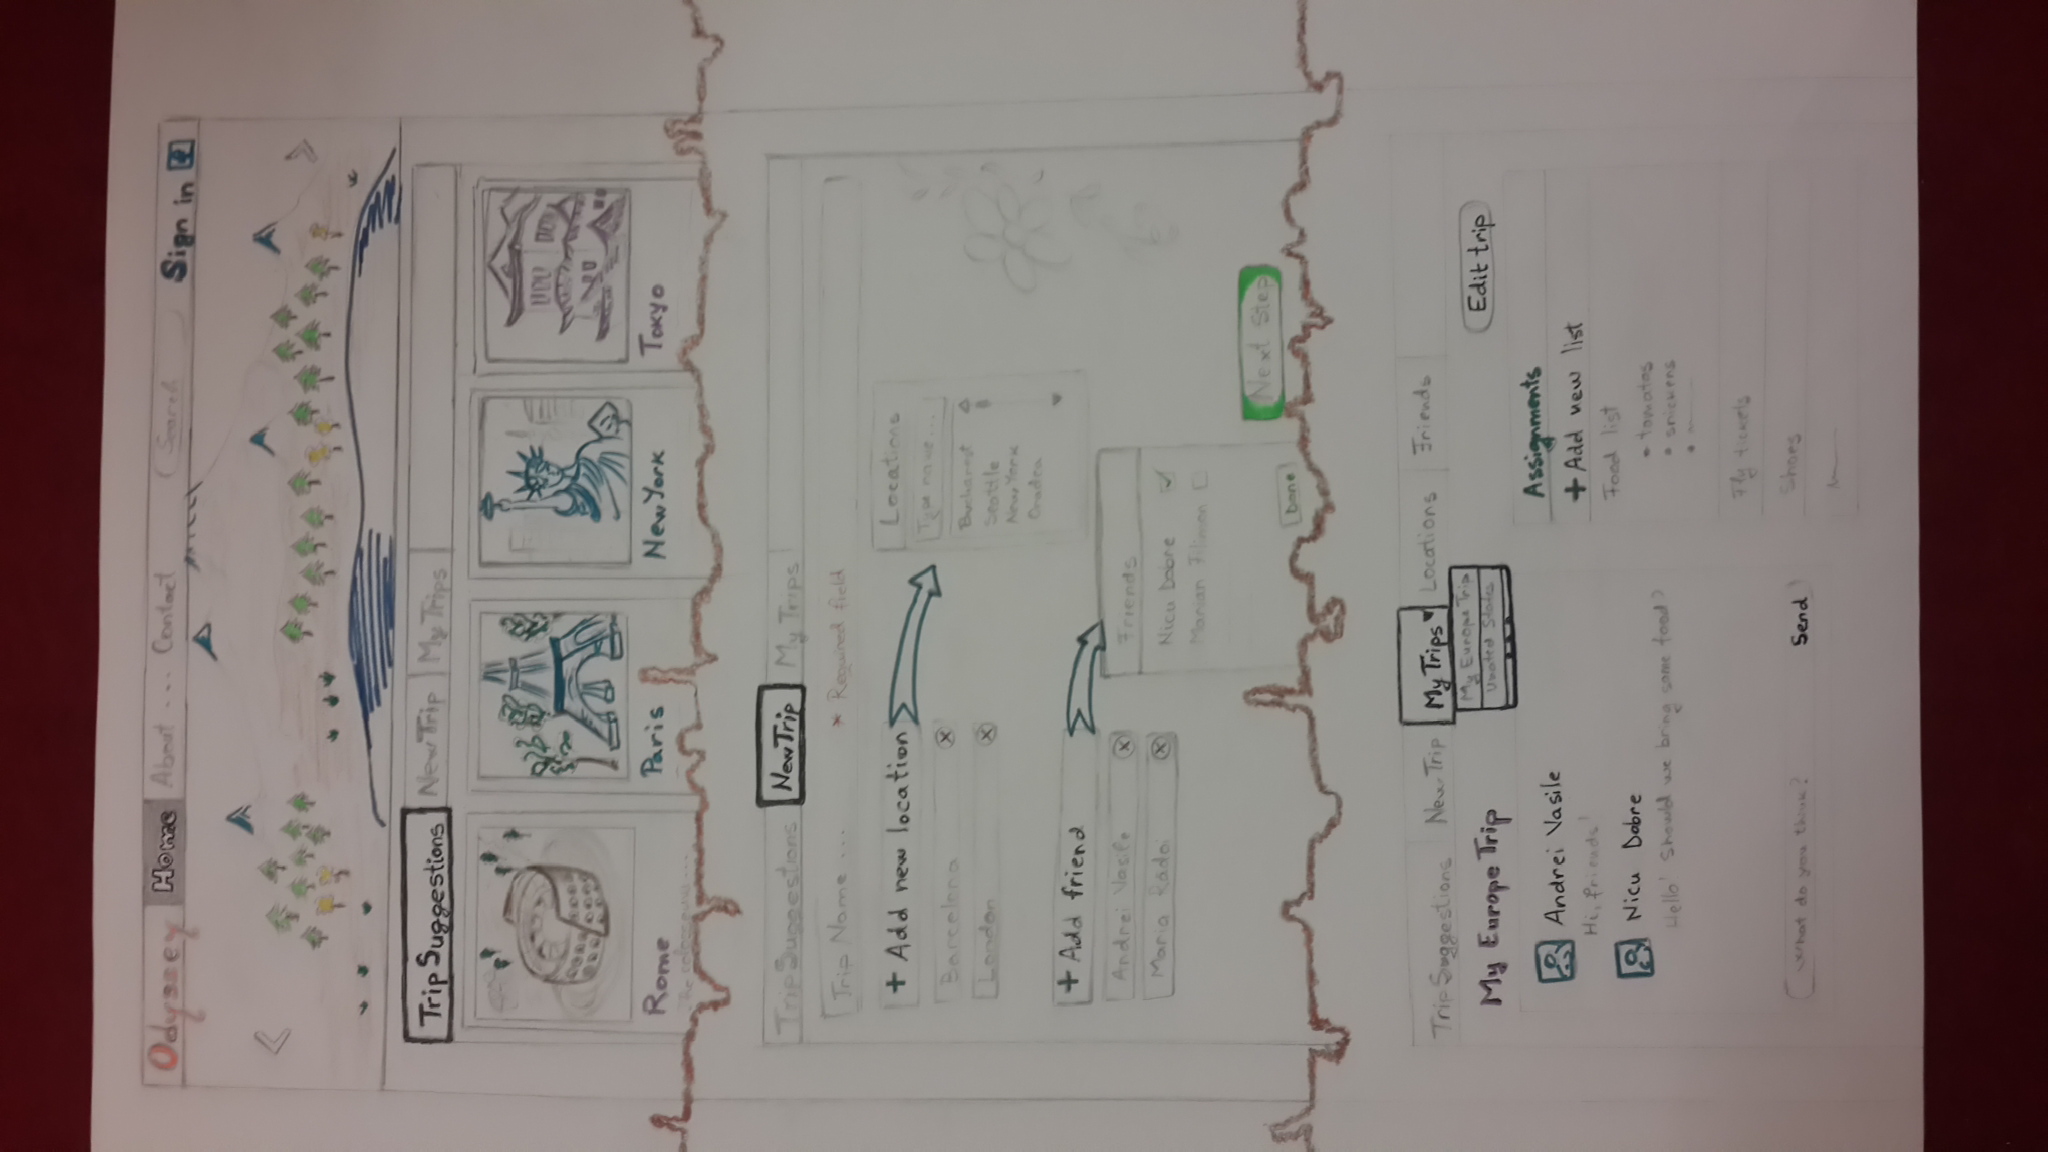 Odyssey Home About ... Contact Search Sign in
Trip Suggestions New Trip My Trips
Rome Paris New York Tokyo
The colosseum ...
Trip Suggestions New Trip My Trips
Trip Name ... * Required field
+ Add new location
Barcelona
London
Locations
Type name...
Bucharest
Seattle
New York
Oradea
+ Add friend
Andrei Vasile
Maria Radoi
Friends
Nicu Dobre
Marian Filimon
Done
Next Step
Trip Suggestions New Trip My Trips Locations Friends
My Europe Trip
United States
My Europe Trip
Edit trip
Andrei Vasile
Hi, friends!
Nicu Dobre
Hello! Should we bring some food?
What do you think? Send
Assignments
+ Add new list
Food list
• tomatos
• snickers
•
Fly tickets
Shoes